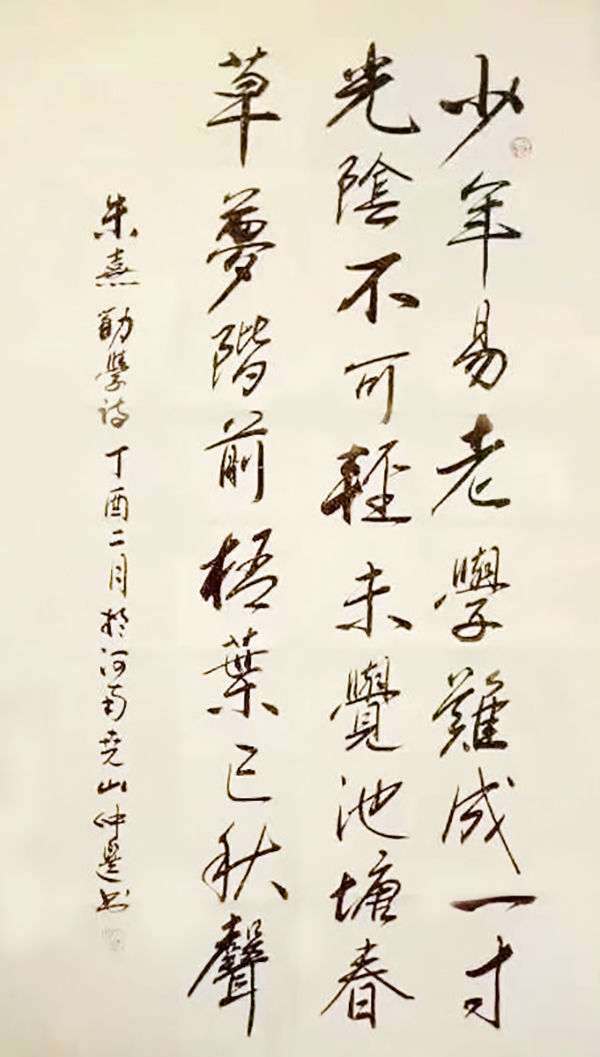 少年易老學難成一寸
光陰不可輕未覺池塘春
草夢階前梧葉已秋聲
朱熹勸學詩丁酉二月於河南堯山仲選书